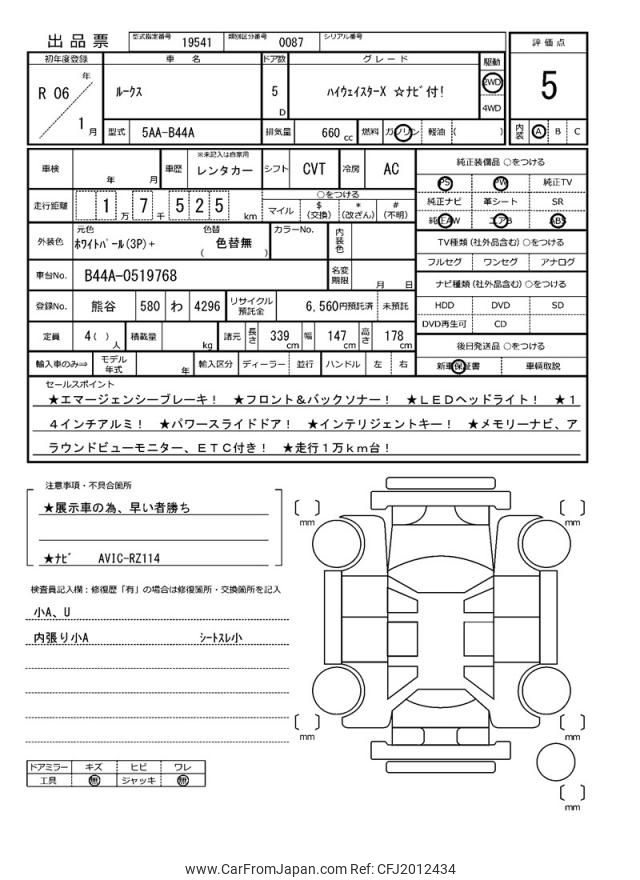 出品票 型式指定番号 19541 類別区分番号 0087 シリアル番号
評価点
5
内装 A B C
初年度登録 車名 ドア数 グレード 駆動
R 06 年 1 月
ルークス 5 D ハイウェイスターX ☆ナビ付! 2WD 4WD
型式 5AA-B44A 排気量 660 cc 燃料 ガソリン 軽油 ( )
車検 年 月 車歴 ※未記入は自家用 レンタカー シフト CVT 冷房 AC
走行距離 1万 7千 5 2 5 km
○をつける
マイル $(交換) *(改ざん) #(不明)
外装色 元色 ホワイトパール(3P)+ 色替 ( 色替無 ) カラーNo. 内装色
車台No. B44A-0519768 名変期限 月 日
登録No. 熊谷 580 わ 4296 リサイクル預託金 6,560円預託済 未預託
定員 4( )人 積載量 kg 諸元 長さ 339 cm 幅 147 cm 高さ 178 cm
輸入車のみ⇒ モデル年式 年 輸入区分 ディーラー 並行 ハンドル 左 右
純正装備品 ○をつける
PS PW 純正TV
純正ナビ 革シート SR
純正AW エアB ABS
TV種類(社外品含む) ○をつける
フルセグ ワンセグ アナログ
ナビ種類(社外品含む) ○をつける
HDD DVD SD
DVD再生可 CD
後日発送品 ○をつける
新車保証書 車輌取説
セールスポイント
★エマージェンシーブレーキ! ★フロント&バックソナー! ★LEDヘッドライト! ★1
4インチアルミ! ★パワースライドドア! ★インテリジェントキー! ★メモリーナビ、ア
ラウンドビューモニター、ETC付き! ★走行1万km台!
注意事項・不具合箇所
★展示車の為、早い者勝ち
★ナビ AVIC-RZ114
検査員記入欄:修復歴「有」の場合は修復箇所・交換箇所を記入
小A、U
内張り小A シートスレ小
ドアミラー キズ ヒビ ワレ
工具 無 ジャッキ 無
mm
mm
mm
mm
mm
www.CarFromJapan.com Ref: CFJ2012434